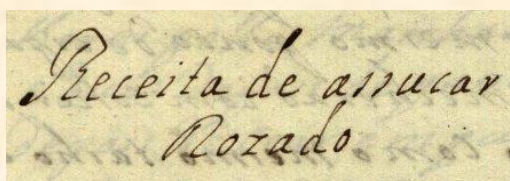 Receita de assucar
Rozado